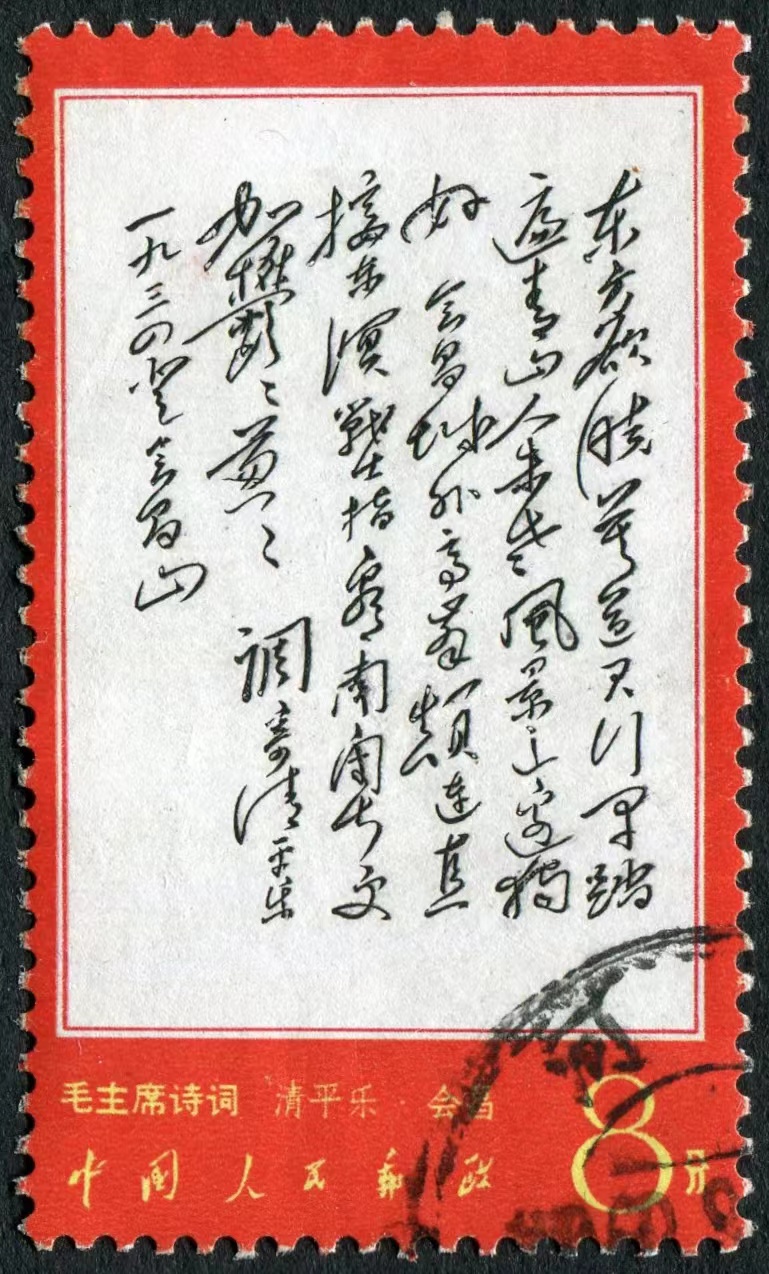 东方欲晓莫道君行早踏
遍青山人未老風景这边独
好 会昌城外高峯颠连直
接东溟戰士指看南粤更
加鬱〻葱〻 調寄清平乐
一九三四登会昌山
毛主席诗词 清平乐·会昌
中国人民邮政
8分